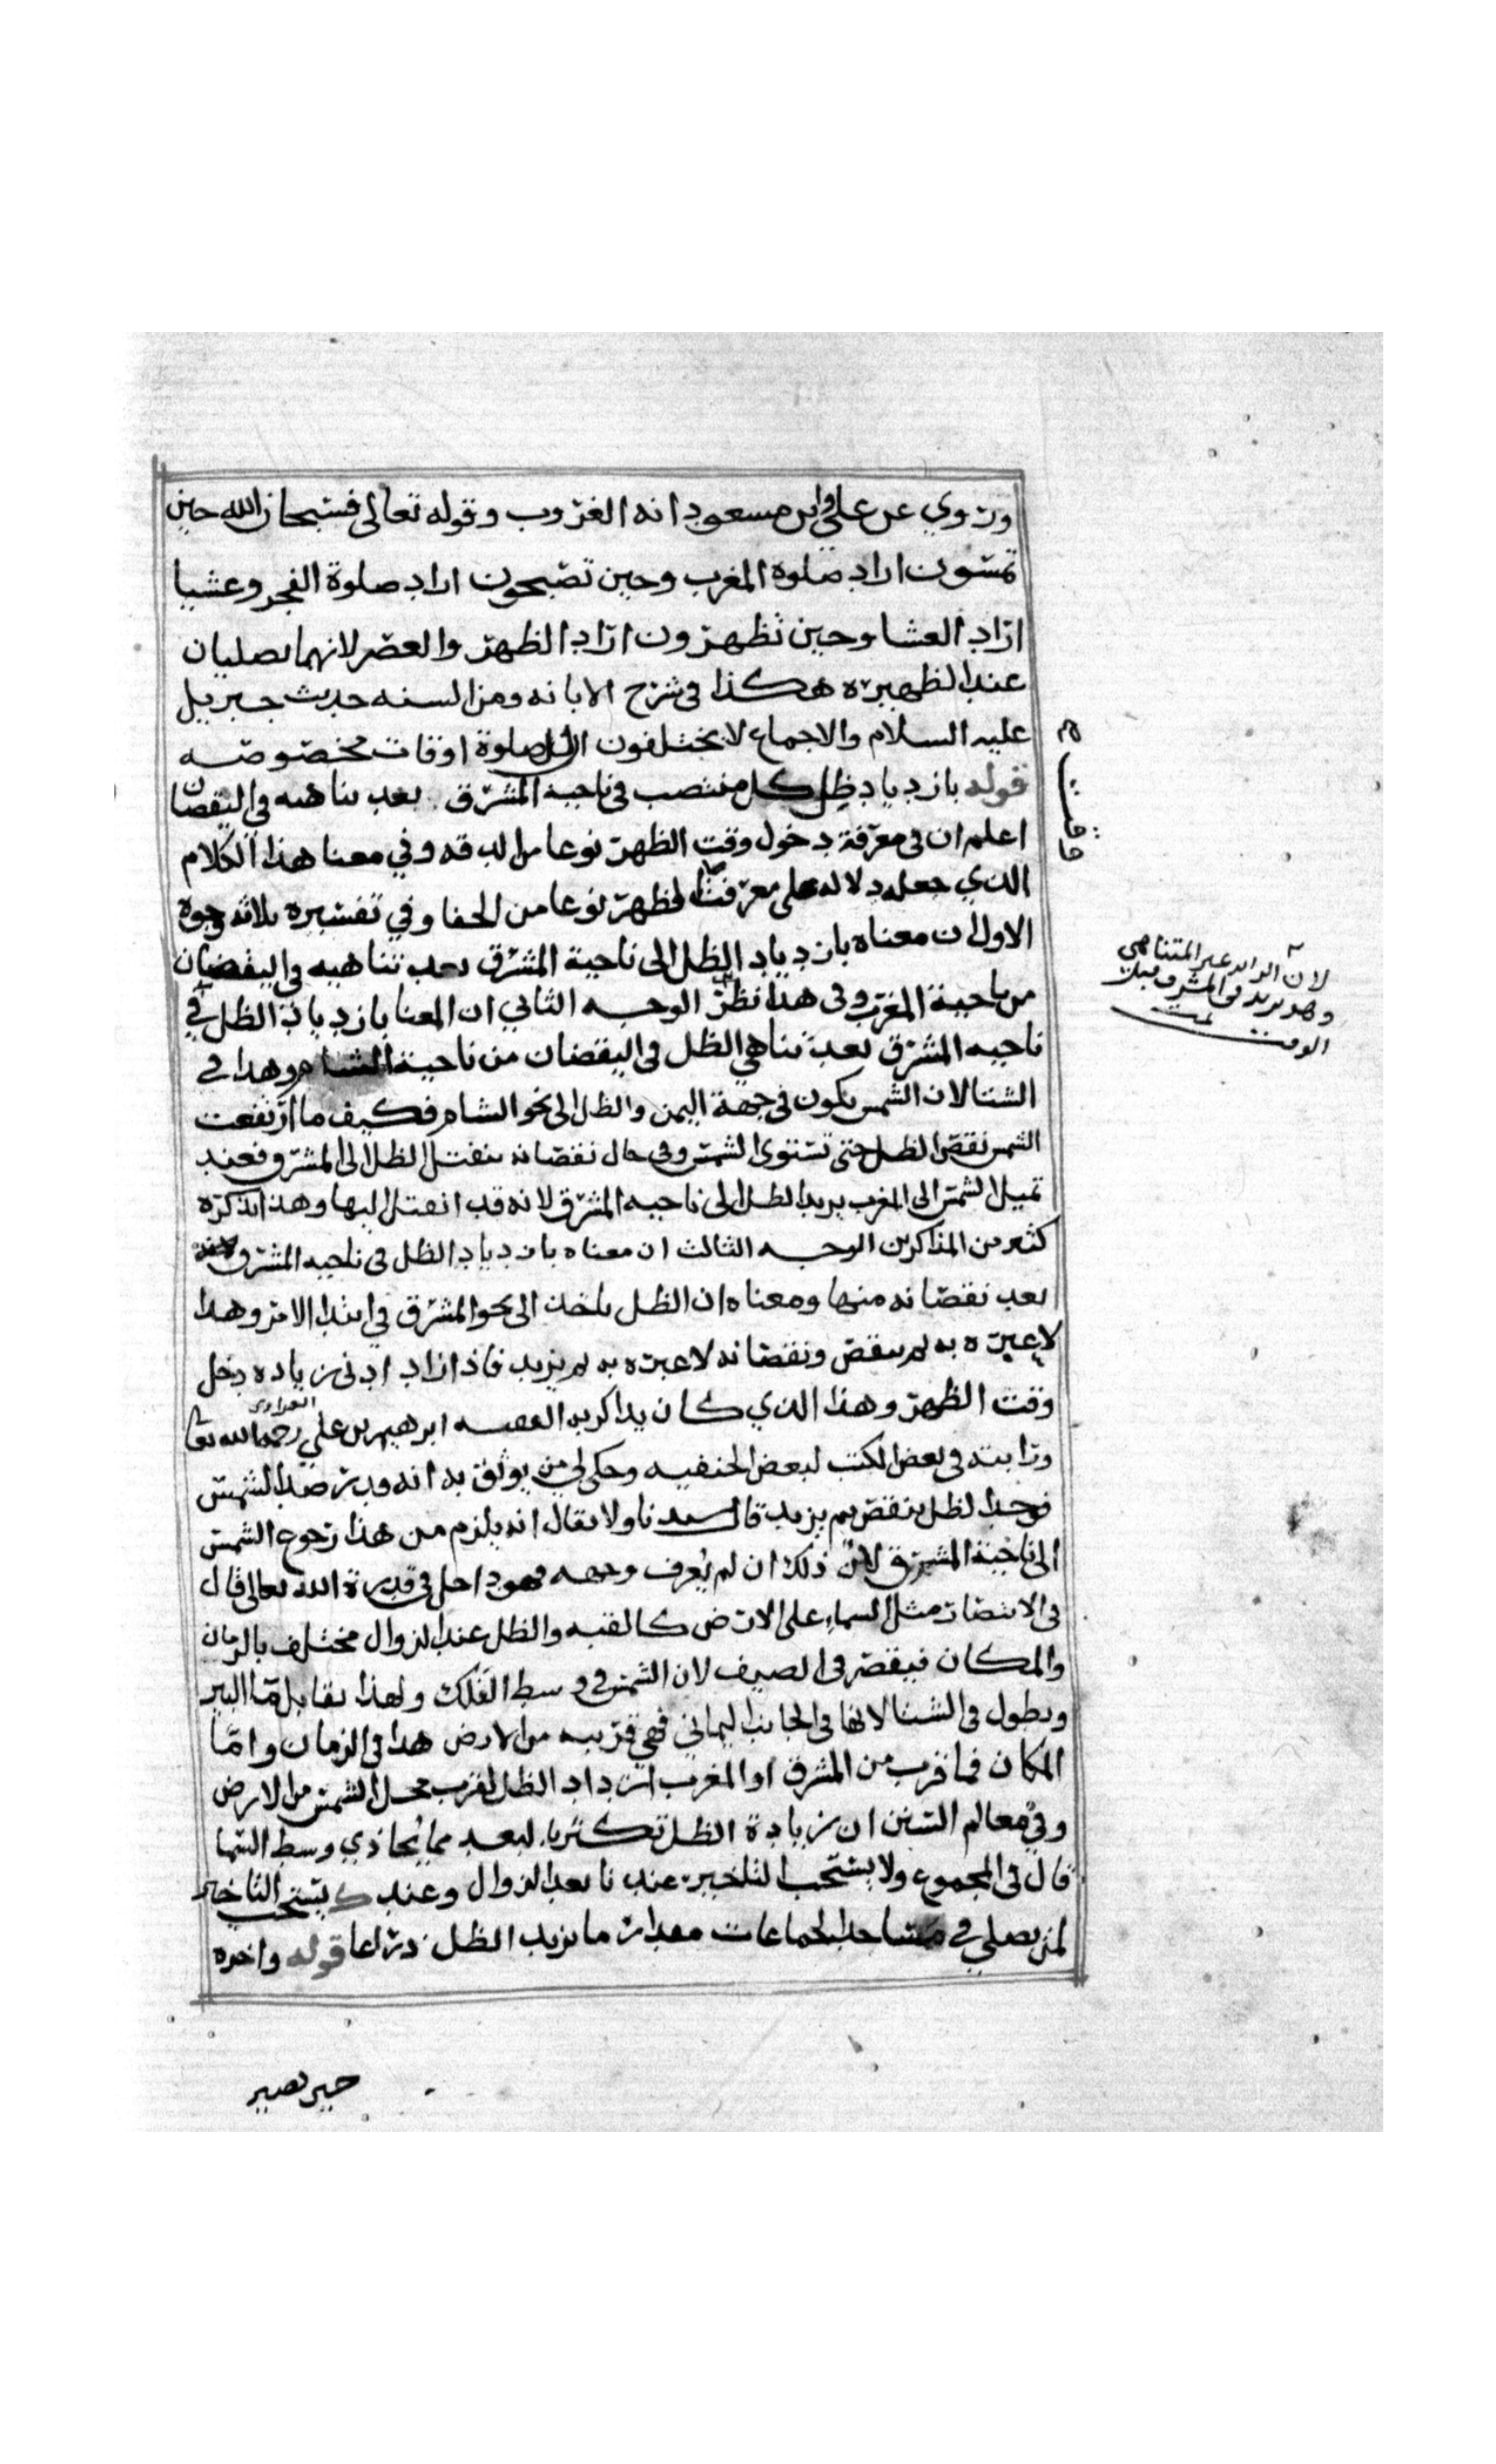 وروي عن علي وابن مسعود انه الغروب وقوله تعالى فسبحان الله حين
تمسون اراد صلوة المغرب وحين تصبحون اراد صلوة الفجر وعشيا
اراد العشا وحين تظهرون اراد الظهر والعصر لانهما يصليان
عند الظهيره هكذا في شرح الابانه ومن السنه حديث جبريل
عليه السلام والاجماع لا يختلفون ان للصلوة اوقات مخصوصه
قوله بازدياد ظل كل منتصب في ناحية المشرق بعد تناهيه في النقصان
اعلم ان في معرفة دخول وقت الظهر نوعا من الدقه وفي معنا هذا الكلام
الذي جعله دلاله على معرفة الظهر نوعا من الخفا وفي تفسيره ثلاثه وجوه
الاول ان معناه بازدياد الظل الى ناحية المشرق بعد تناهيه في النقصان
من ناحية المغرب وفي هذا نظر الوجه الثاني ان المعنا بازدياد الظل في
ناحيه المشرق بعد تناهي الظل في النقصان من ناحية الشام وهذا في
الشتا لان الشمس يكون في جهة اليمن والظل الى نحو الشام فكيف ما ارتفعت
الشمس نقص الظل حتى تستوي الشمس وفي حال نقصانه ينفتل الظل الى المشرق فعند
تميل الشمس الى المغرب يزيد الظل الى ناحيه المشرق لانه قد انفتل اليها وهذا ذكره
كثير من المذاكرين الوجه الثالث ان معناه بازدياد الظل في ناحيه المشرق
بعد نقصانه منها ومعناه ان الظل ياخذ الى نحو المشرق في ابتدا الامر وهذا
لا عبره به ثم ينقص ونقصانه لا عبره به ثم يزيد فاذا زاد ادنى زياده دخل
وقت الظهر وهذا الذي كان يذاكر به الفقيه ابرهيم بن علي العراري رحمه الله تعا
ورايته في بعض الكتب لبعض الحنفيه وحكى لي من يوثق به انه قد رصد الشمس
فوجد الظل ينقص ثم يزيد قال سيدنا ولا يقال انه يلزم من هذا رجوع الشمس
الى ناحية المشرق لان ذلك ان لم يعرف وجهه فهو داخل في قدرة الله تعالى قال
في الانتصار مثل السماء على الارض كالقبه والظل عند الزوال مختلف بالزمان
والمكان فيقصر في الصيف لان الشمس في وسط الفلك ولهذا تقابل قعر البير
ويطول في الشتا لانها في الجانب اليماني فهي قريبه من الارض هذا في الزمان واما
المكان فما قرب من المشرق او المغرب ازداد الظل لقرب محل الشمس من الارض
وفي معالم السنن ان زيادة الظل تكثر بالبعد مما يحاذي وسط السما
قال في المجموع ولا يستحب التاخير عندنا بعد الزوال وعند ك يستحب التاخير
لمن يصلي في مساجد الجماعات مقدار ما يزيد الظل ذراعا قوله واخره
لان الزائد غير المتناهي
وهو يزيد في المشرق قبل
الوقت تمت
حين يصير